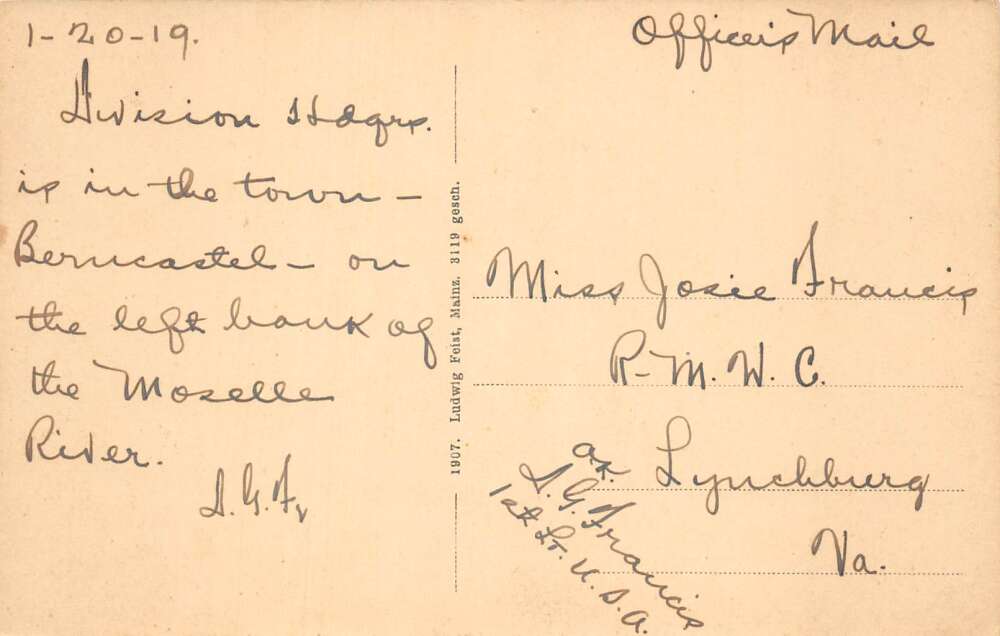 1-20-19.
Division Hdqrs.
is in the town -
Berncastel - on
the left bank of
the Moselle
River.
S.G.F.
1907. Ludwig Feist, Mainz. 3119 gesch.
Officer's Mail
Miss Josie Francis
R-M.W.C.
Lynchburg
Va.
S.G. Francis
1st Lt. U.S.A.